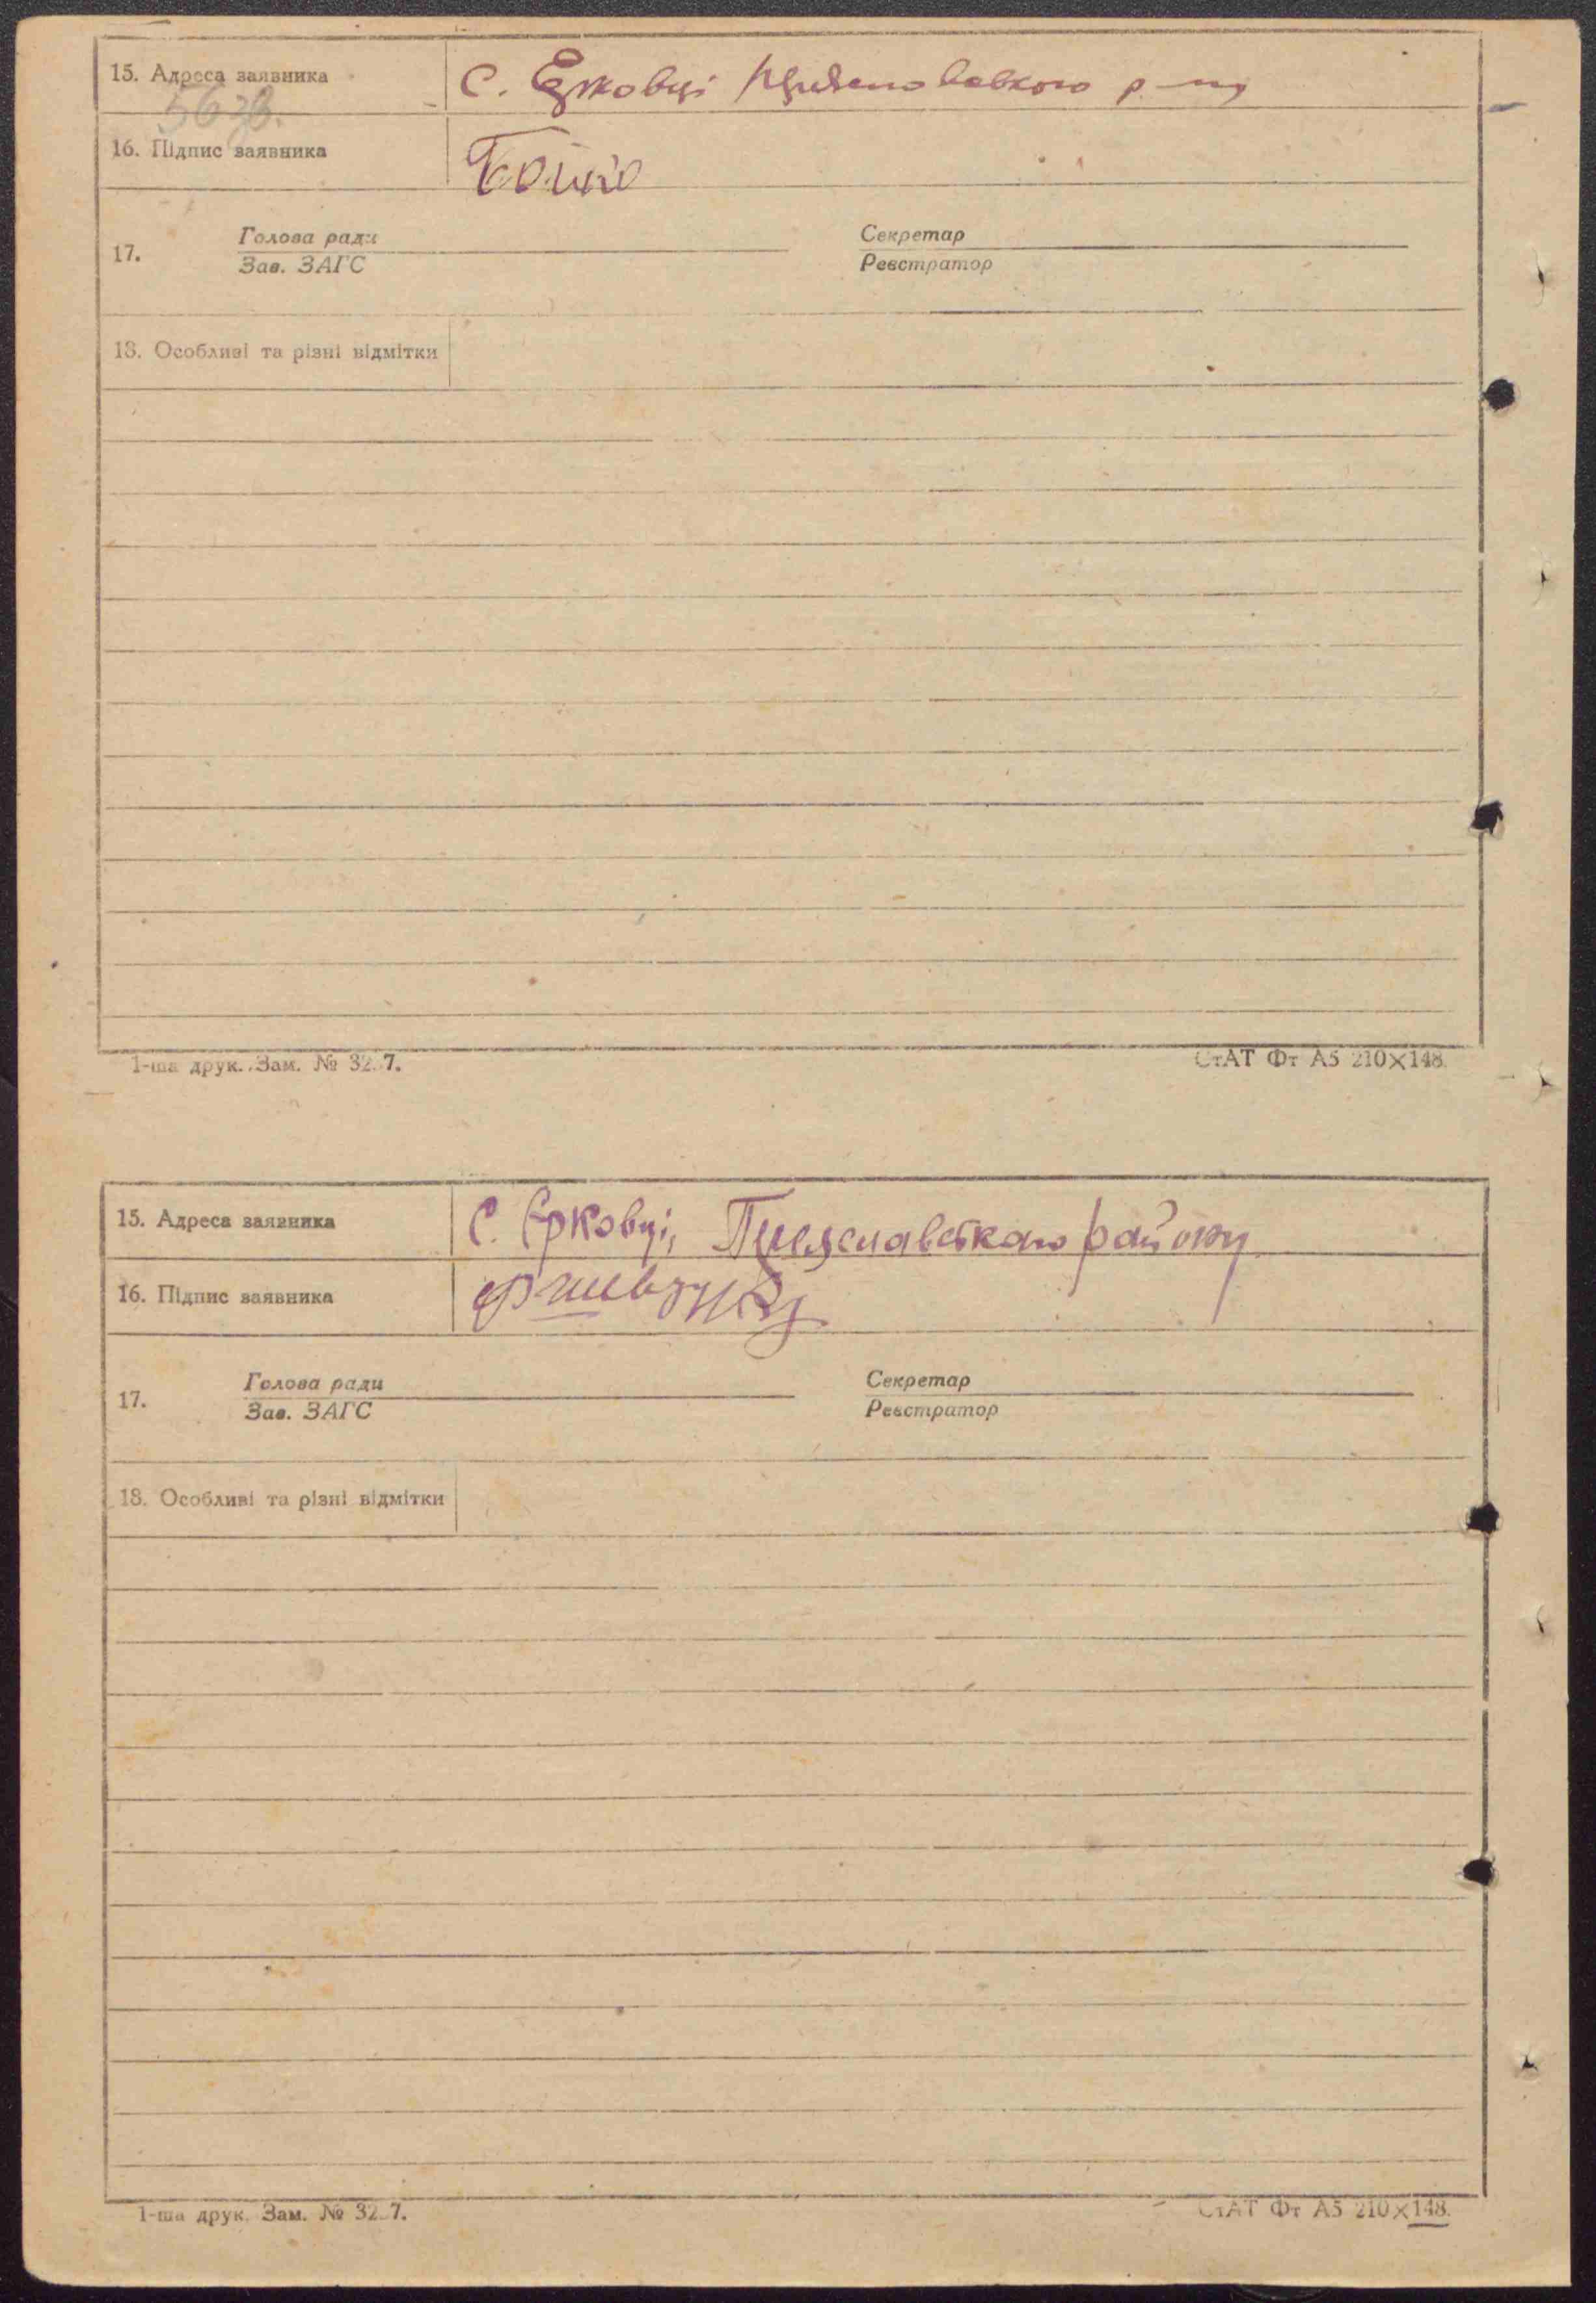 15. Адреса заявника С. Єрковці р-ну
16. Підпис заявника Бойко
Голова ради Секретар
17.
Зав. ЗАГС Реєстратор
18. Особливі та різні відмітки
1-ша друк. Зам. № 32 7. СтАТ Фт А5 210×148.
15. Адреса заявника С. Єрковці, Переяславського району
16. Підпис заявника
Голова ради Секретар
17.
Зав. ЗАГС Реєстратор
18. Особливі та різні відмітки
1-ша друк. Зам. № 32 7. СтАТ Фт А5 210×148.